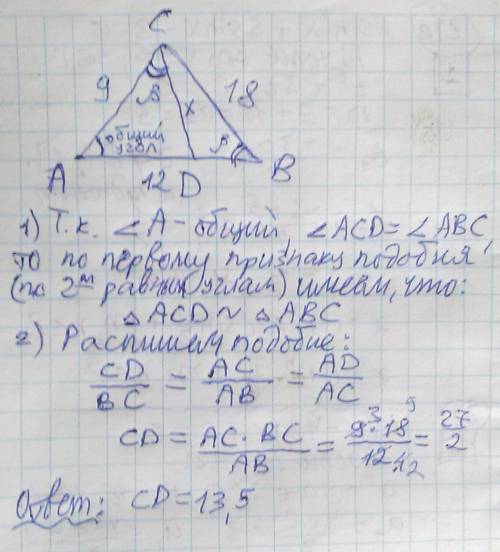 C
9
β
x
18
общий
угол
β
A
12
D
B
1) Т.к. ∠A - общий, ∠ACD = ∠ABC,
то по первому признаку подобия
(по 2ᵐ равным углам) имеем, что:
△ACD ~ △ABC
2) Распишем подобие:
CD/BC = AC/AB = AD/AC
CD = AC·BC/AB = 9·18/12 = 27/2
3 9
4 2
Ответ: CD = 13,5